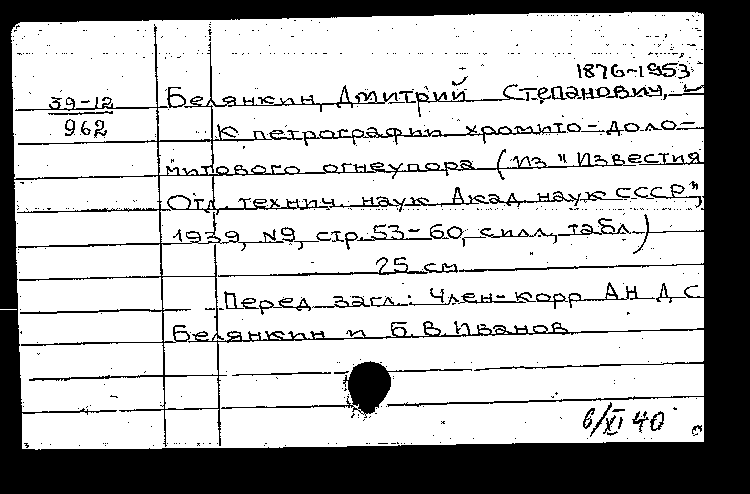 1876-1953
39-12
962
Белянкин, Дмитрий Степанович, -
К петрографии хромито-доло-
митового огнеупора (Из "Известия
Отд. технич. наук Акад. наук СССР",
1939, №9, стр. 53-60, с илл., табл.)
25 см
Перед загл.: Член-корр АН Д С
Белянкин и Б. В. Иванов
6/XI 40